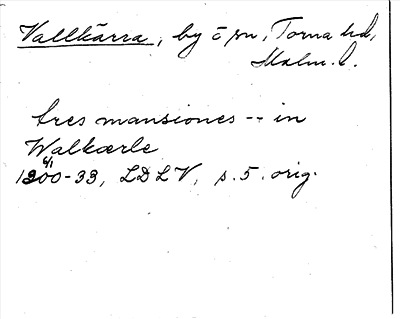 Vallkärra, by o sn, Torna hd,
Malm. l.
tres mansiones -- in
Walkærle
6/1
1300-33, LDLV, s. 5. orig.